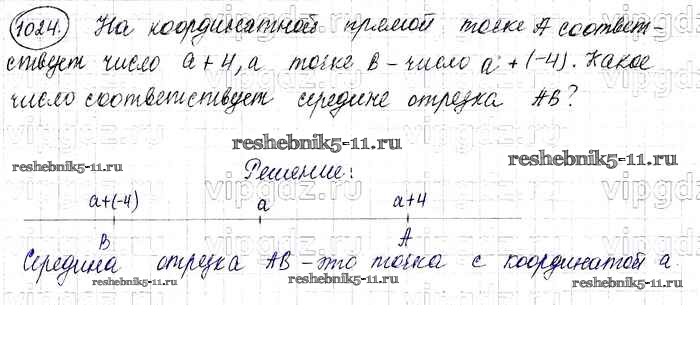 1024. На координатной прямой точке A соответ-
ствует число a+4, а точке B - число a+(-4). Какое
число соответствует середине отрезка AB?
reshebnik5-11.ru
reshebnik5-11.ru
reshebnik5-11.ru
Решение:
a+(-4) a a+4
B A
Середина отрезка AB - это точка с координатой a
reshebnik5-11.ru
reshebnik5-11.ru